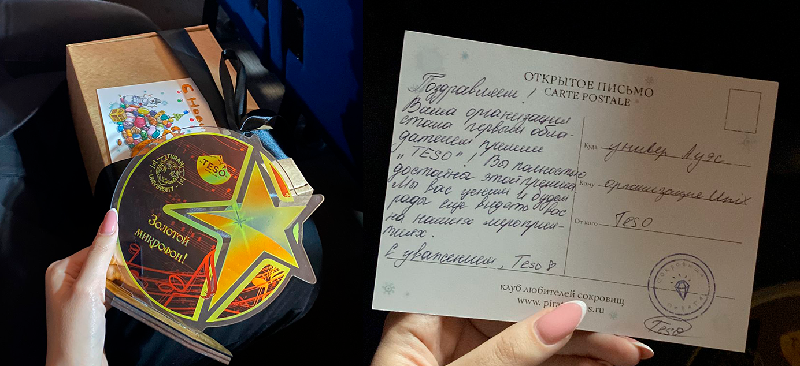 С Новы
TESO
Золотой
микрофон!
ОТКРЫТОЕ ПИСЬМО
CARTE POSTALE
Поздравляем!
Ваша организация
стала первой обла-
дателем премии
„TESO"! Вы полностью
достойны этой премии
Мы вас ценим и будем
рады ещё видеть вас
на наших мероприя-
тиях.
С уважением, Teso
Куда универ Аудс
Кому организация Unix
От кого Teso
клуб любителей сокровищ
Teso